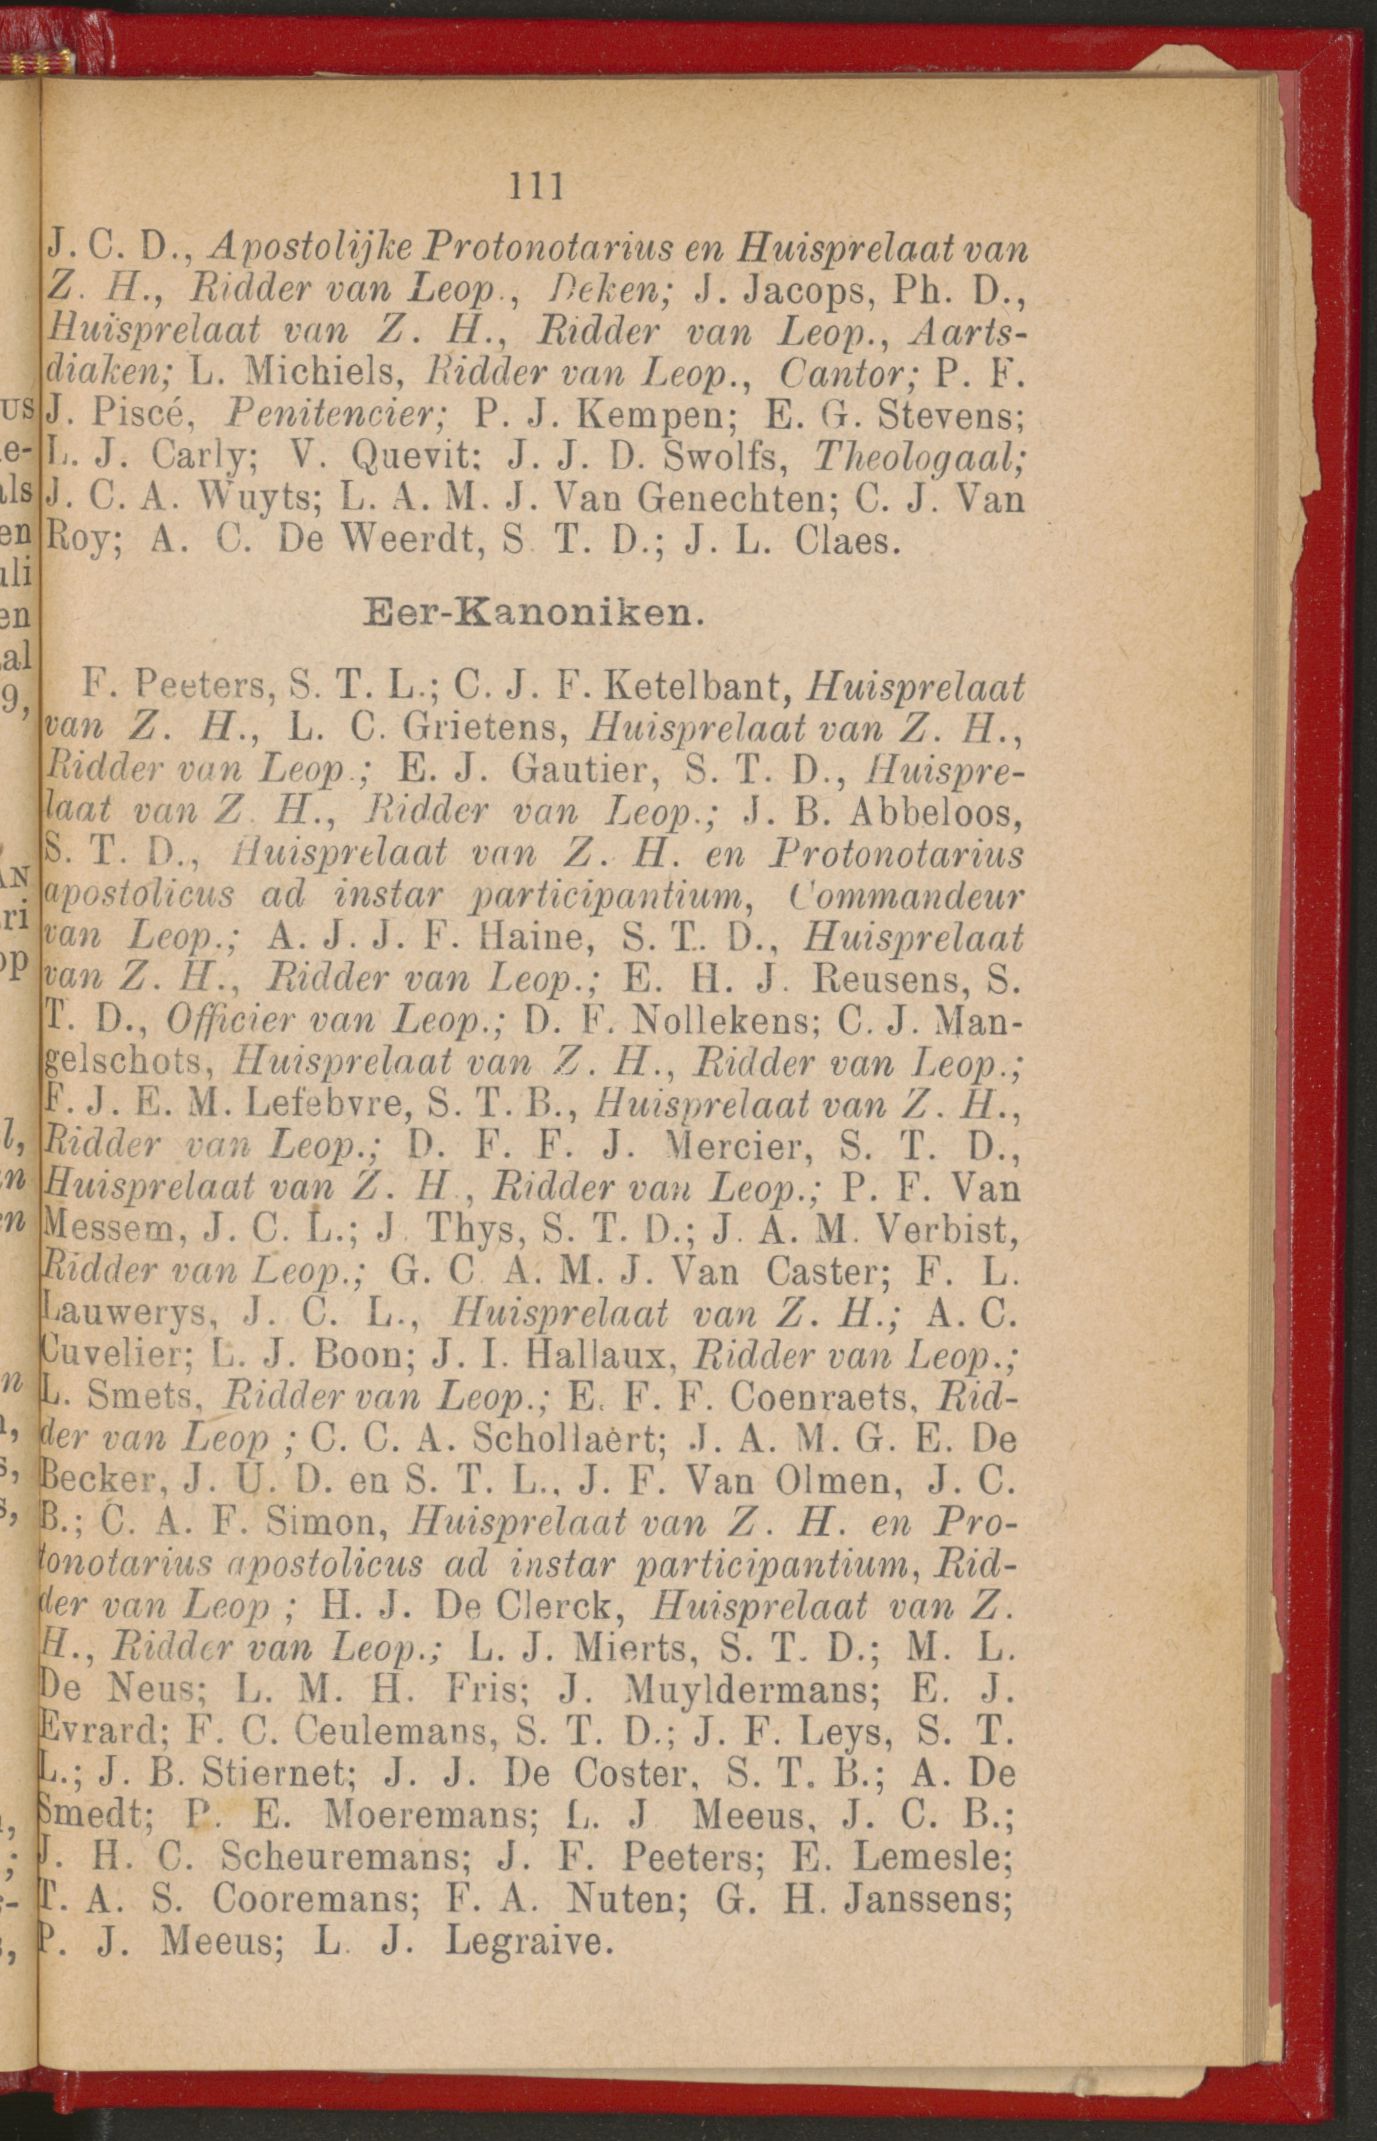 111
J. C. D., Apostolijke Protonotarius en Huisprelaat van
Z. H., Ridder van Leop., Deken; J. Jacops, Ph. D.,
Huisprelaat van Z. H., Ridder van Leop., Aarts-
diaken; L. Michiels, Ridder van Leop., Cantor; P. F.
J. Piscé, Penitencier; P. J. Kempen; E. G. Stevens;
L. J. Carly; V. Quevit; J. J. D. Swolfs, Theologaal;
J. C. A. Wuyts; L. A. M. J. Van Genechten; C. J. Van
Roy; A. C. De Weerdt, S. T. D.; J. L. Claes.
Eer-Kanoniken.
F. Peeters, S. T. L.; C. J. F. Ketelbant, Huisprelaat
van Z. H., L. C. Grietens, Huisprelaat van Z. H.,
Ridder van Leop.; E. J. Gautier, S. T. D., Huispre-
laat van Z. H., Ridder van Leop.; J. B. Abbeloos,
S. T. D., Huisprelaat van Z. H. en Protonotarius
apostolicus ad instar participantium, Commandeur
van Leop.; A. J. J. F. Haine, S. T. D., Huisprelaat
van Z. H., Ridder van Leop.; E. H. J. Reusens, S.
T. D., Officier van Leop.; D. F. Nollekens; C. J. Man-
gelschots, Huisprelaat van Z. H., Ridder van Leop.;
F. J. E. M. Lefebvre, S. T. B., Huisprelaat van Z. H.,
Ridder van Leop.; D. F. F. J. Mercier, S. T. D.,
Huisprelaat van Z. H., Ridder van Leop.; P. F. Van
Messem, J. C. L.; J. Thys, S. T. D.; J. A. M. Verbist,
Ridder van Leop.; G. C. A. M. J. Van Caster; F. L.
Lauwerys, J. C. L., Huisprelaat van Z. H.; A. C.
Cuvelier; L. J. Boon; J. I. Hallaux, Ridder van Leop.;
L. Smets, Ridder van Leop.; E. F. F. Coenraets, Rid-
der van Leop ; C. C. A. Schollaert; J. A. M. G. E. De
Becker, J. U. D. en S. T. L., J. F. Van Olmen, J. C.
B.; C. A. F. Simon, Huisprelaat van Z. H. en Pro-
tonotarius apostolicus ad instar participantium, Rid-
der van Leop ; H. J. De Clerck, Huisprelaat van Z.
H., Ridder van Leop.; L. J. Mierts, S. T. D.; M. L.
De Neus; L. M. H. Fris; J. Muyldermans; E. J.
Evrard; F. C. Ceulemans, S. T. D.; J. F. Leys, S. T.
L.; J. B. Stiernet; J. J. De Coster, S. T. B.; A. De
Smedt; P. E. Moeremans; L. J Meeus, J. C. B.;
J. H. C. Scheuremans; J. F. Peeters; E. Lemesle;
T. A. S. Cooremans; F. A. Nuten; G. H. Janssens;
P. J. Meeus; L. J. Legraive.